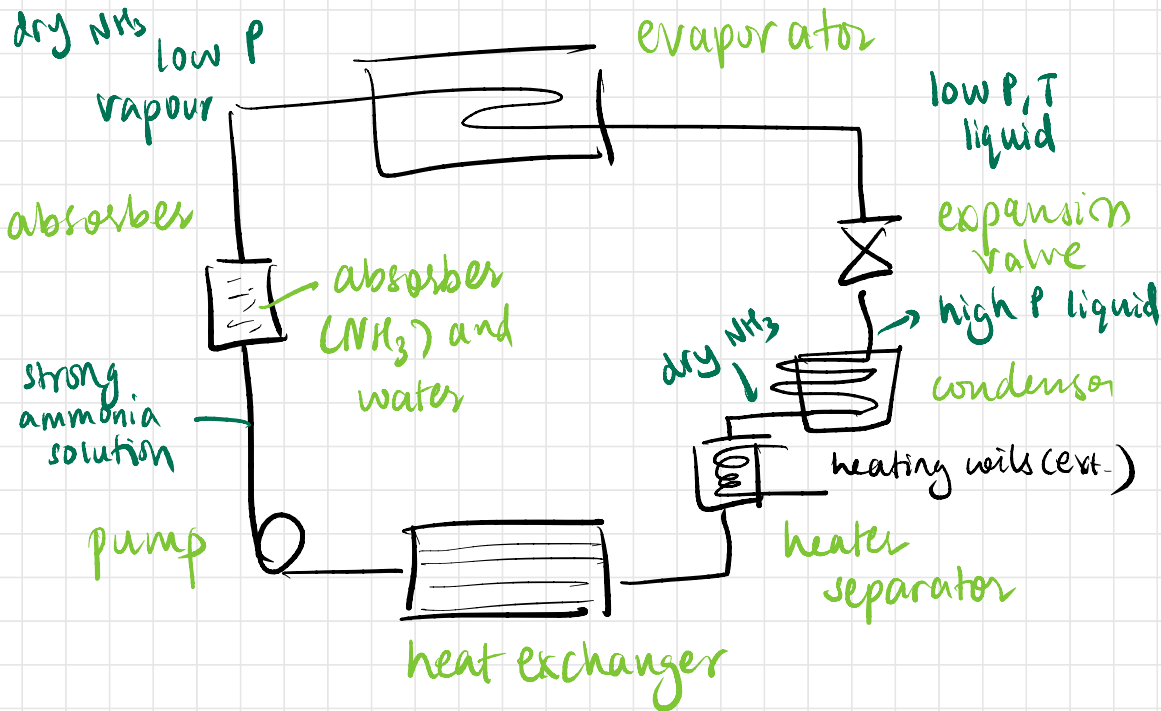 dry NH3
low P
vapour
evaporator
low P, T
liquid
absorber
expansion
valve
absorber
(NH3) and
water
high P liquid
dry NH3
condensor
strong
ammonia
solution
heating coils (ext.)
pump
heater
separator
heat exchanger